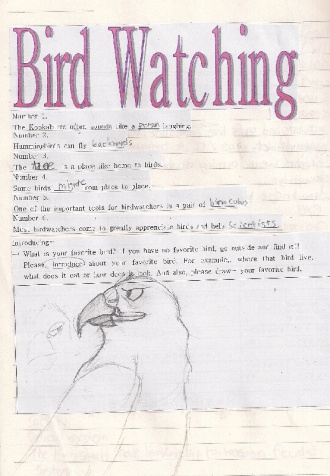 Bird Watching
Number 1.
The Kookaburra often sounds like a person laughing.
Number 2.
Hummingbirds can fly backwards
Number 3.
The tree is a place like home to birds.
Number 4.
Some birds migrate from place to place.
Number 5.
One of the important tools for birdwatchers is a pair of binoculars
Number 6.
Most birdwatchers come to greatly appreciate birds and help scientists
Introducing~
- What is your favorite bird? If you have no favorite bird, go outside and find it!
Please, introduce about your favorite bird. For example, where that bird live,
what does it eat or how does it look. And also, please draw~ your favorite bird.